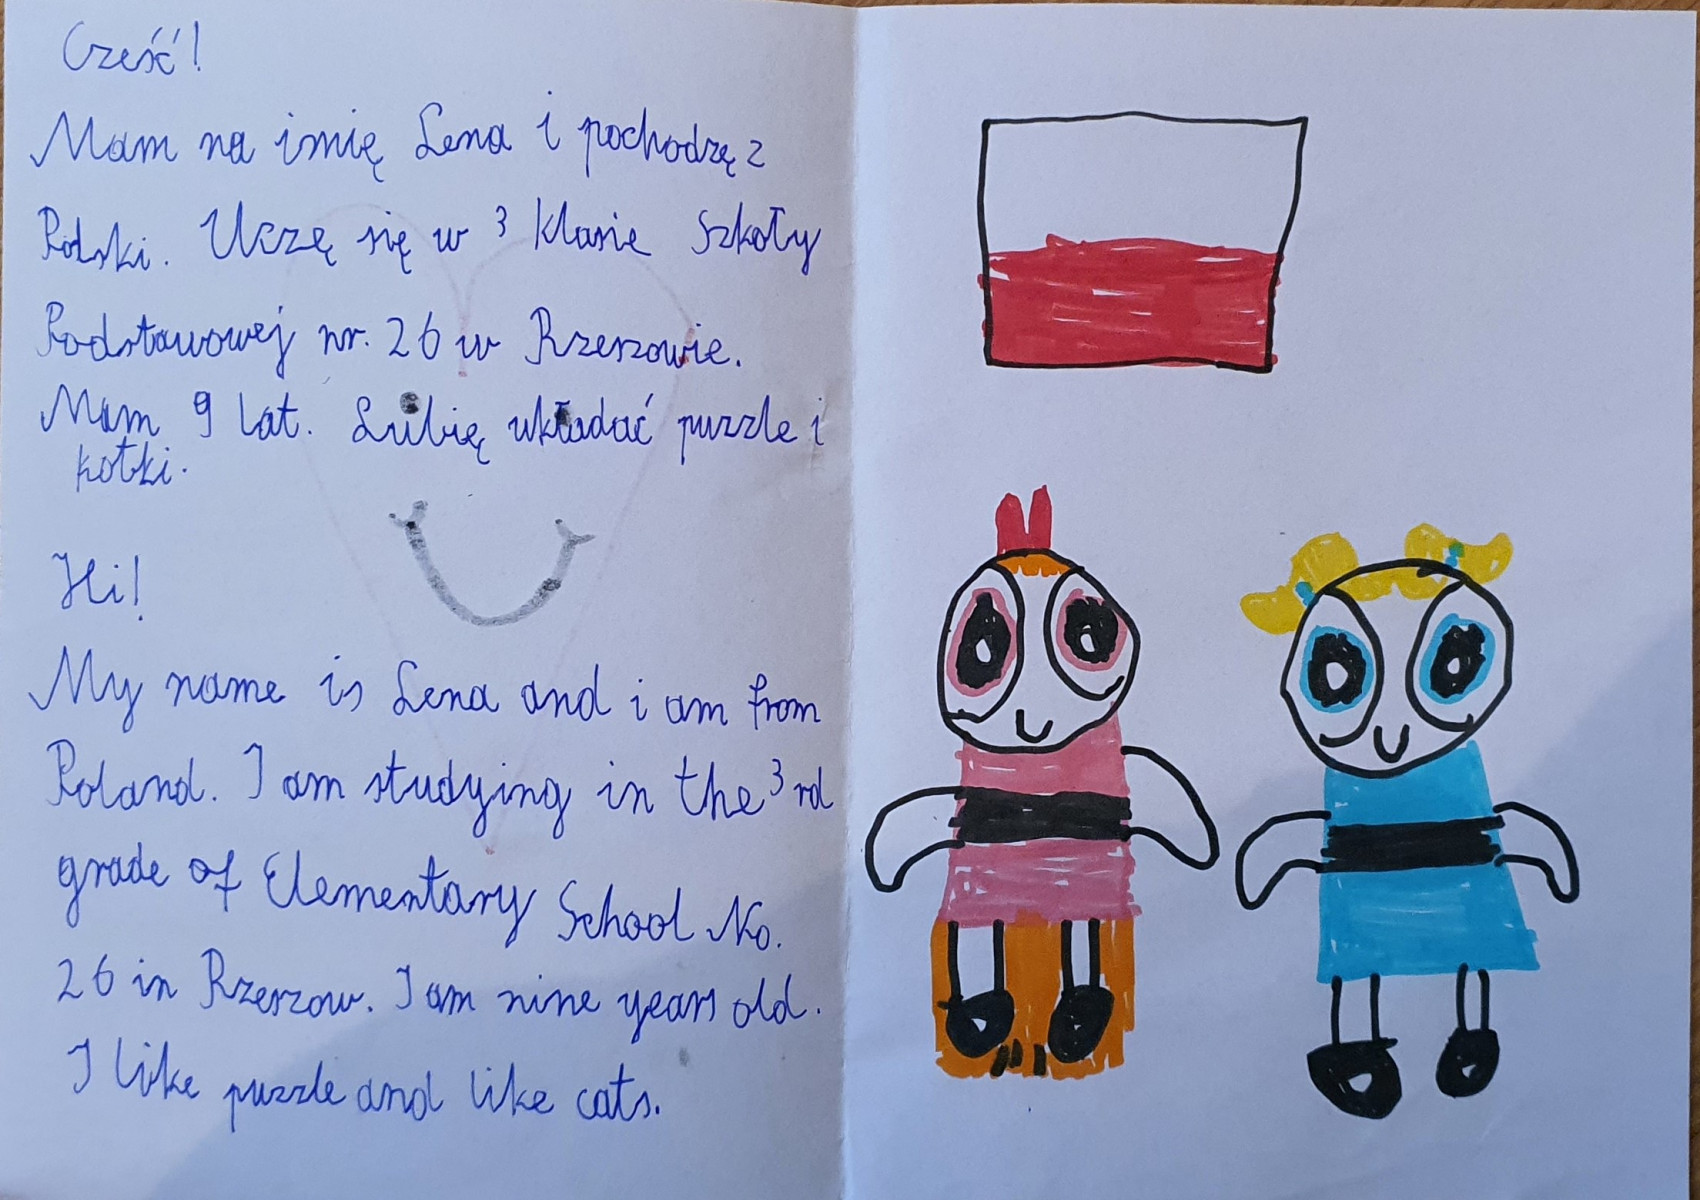 Cześć!
Mam na imię Lena i pochodzę z
Polski. Uczę się w 3 klasie Szkoły
Podstawowej nr. 26 w Rzeszowie.
Mam 9 lat. Lubię układać puzzle i
kotki.
Hi!
My name is Lena and i am from
Poland. I am studying in the 3rd
grade of Elementary School No.
26 in Rzeszow. I am nine years old.
I like puzzle and like cats.